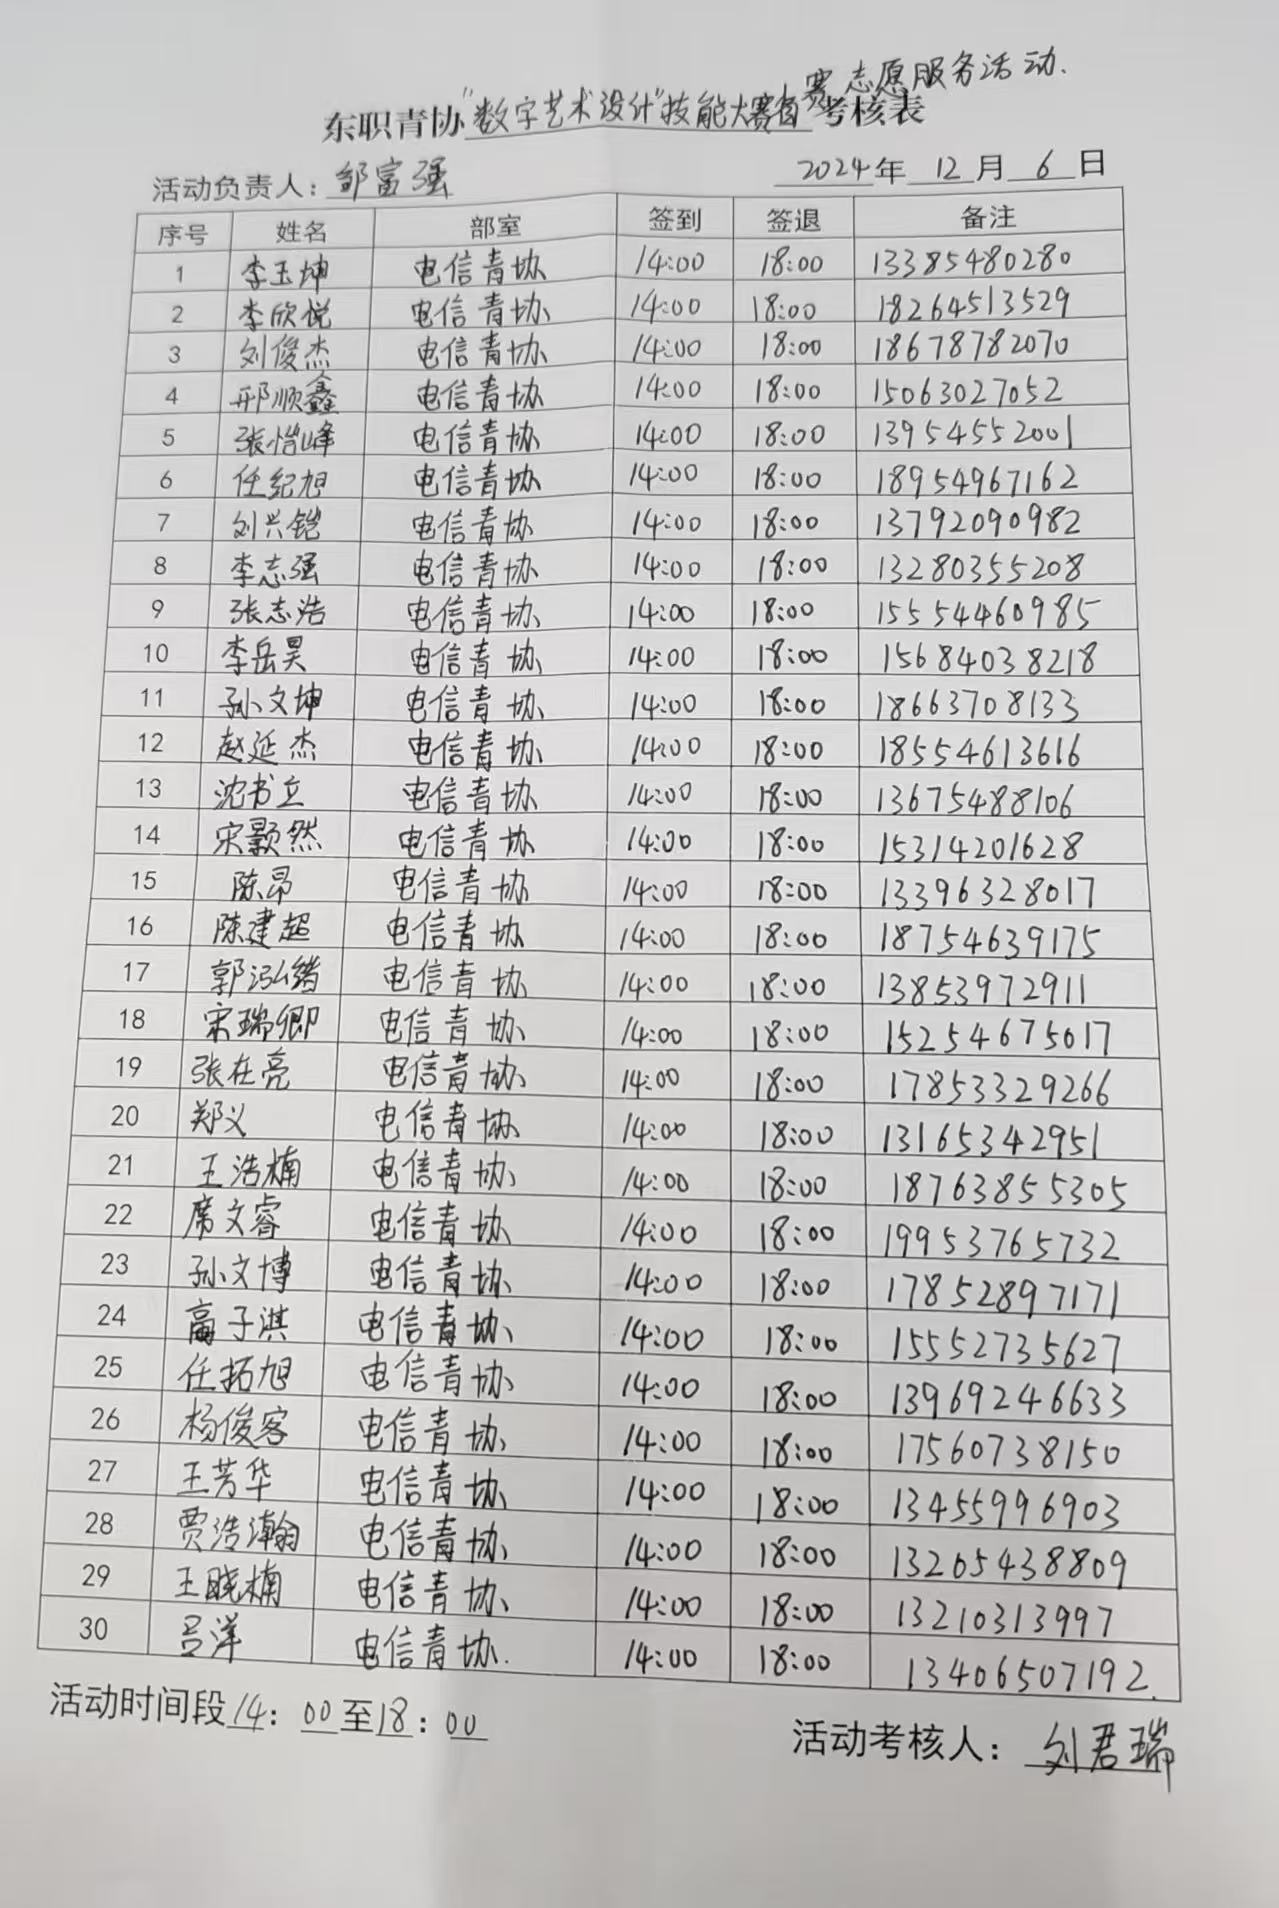 赛志愿服务活动.
东职青协"数字艺术设计"技能大赛 考核表
活动负责人：邹富强 2024年 12月 6日
序号 姓名 部室 签到 签退 备注
1 李玉坤 电信青协 14:00 18:00 13385480280
2 李欣悦 电信青协 14:00 18:00 18264513529
3 刘俊杰 电信青协 14:00 18:00 18678782070
4 邢顺鑫 电信青协 14:00 18:00 15063027052
5 张恺峰 电信青协 14:00 18:00 13954552001
6 任纪旭 电信青协 14:00 18:00 18954967162
7 刘兴铠 电信青协 14:00 18:00 13792090982
8 李志强 电信青协 14:00 18:00 13280355208
9 张志浩 电信青协 14:00 18:00 15554460985
10 李岳昊 电信青协 14:00 18:00 15684038218
11 孙文坤 电信青协 14:00 18:00 18663708133
12 赵延杰 电信青协 14:00 18:00 18554613616
13 沈书立 电信青协 14:00 18:00 13675488106
14 宋颢然 电信青协 14:00 18:00 15314201628
15 陈昂 电信青协 14:00 18:00 13396328017
16 陈建超 电信青协 14:00 18:00 18754639175
17 郭泓绪 电信青协 14:00 18:00 13853972911
18 宋瑞卿 电信青协 14:00 18:00 15254675017
19 张在亮 电信青协 14:00 18:00 17853329266
20 郑义 电信青协 14:00 18:00 13165342951
21 王浩楠 电信青协 14:00 18:00 18763855305
22 席文睿 电信青协 14:00 18:00 19953765732
23 孙文博 电信青协 14:00 18:00 17852897171
24 高子淇 电信青协 14:00 18:00 15552735627
25 任拓旭 电信青协 14:00 18:00 13969246633
26 杨俊客 电信青协 14:00 18:00 17560738150
27 王芳华 电信青协 14:00 18:00 13455996903
28 贾浩瀚 电信青协 14:00 18:00 13205438809
29 王晓楠 电信青协 14:00 18:00 13210313997
30 吕洋 电信青协. 14:00 18:00 13406507192.
活动时间段14：00至18：00
活动考核人：刘君瑞